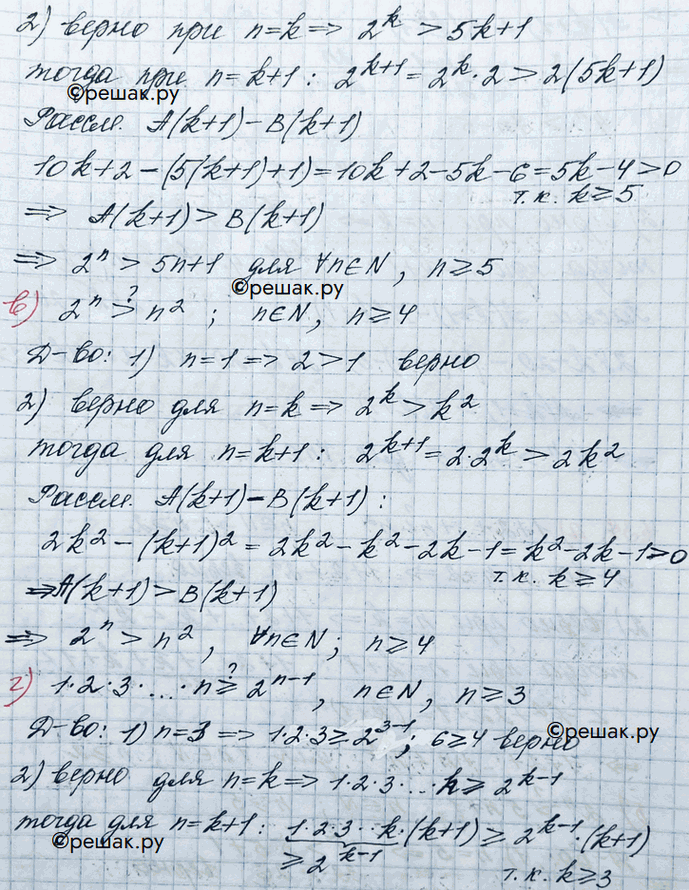 2) верно при n=k => 2^k > 5k+1
тогда при n=k+1: 2^{k+1} = 2^k·2 > 2(5k+1)
©решак.ру
Рассм. A(k+1)-B(k+1)
10k+2-(5(k+1)+1)=10k+2-5k-6=5k-4>0
т.к. k≥5
=> A(k+1)>B(k+1)
=> 2^n > 5n+1 для ∀n∈N, n≥5
©решак.ру
в) 2^n >? n^2; n∈N, n≥4
Д-во: 1) n=1 => 2>1 верно
2) верно для n=k => 2^k > k^2
тогда для n=k+1: 2^{k+1} = 2·2^k > 2k^2
Рассм. A(k+1)-B(k+1):
2k^2-(k+1)^2 = 2k^2-k^2-2k-1 = k^2-2k-1>0
т.к. k≥4
=> A(k+1)>B(k+1)
=> 2^n > n^2, ∀n∈N; n≥4
г) 1·2·3·...·n ≥? 2^{n-1}, n∈N, n≥3
Д-во: 1) n=3 => 1·2·3≥2^{3-1}; 6≥4 верно
©решак.ру
2) верно для n=k => 1·2·3·...k≥2^{k-1}
тогда для n=k+1: 1·2·3··k·(k+1) ≥ 2^{k-1}·(k+1)
©решак.ру
≥2^{k-1} т.к. k≥3